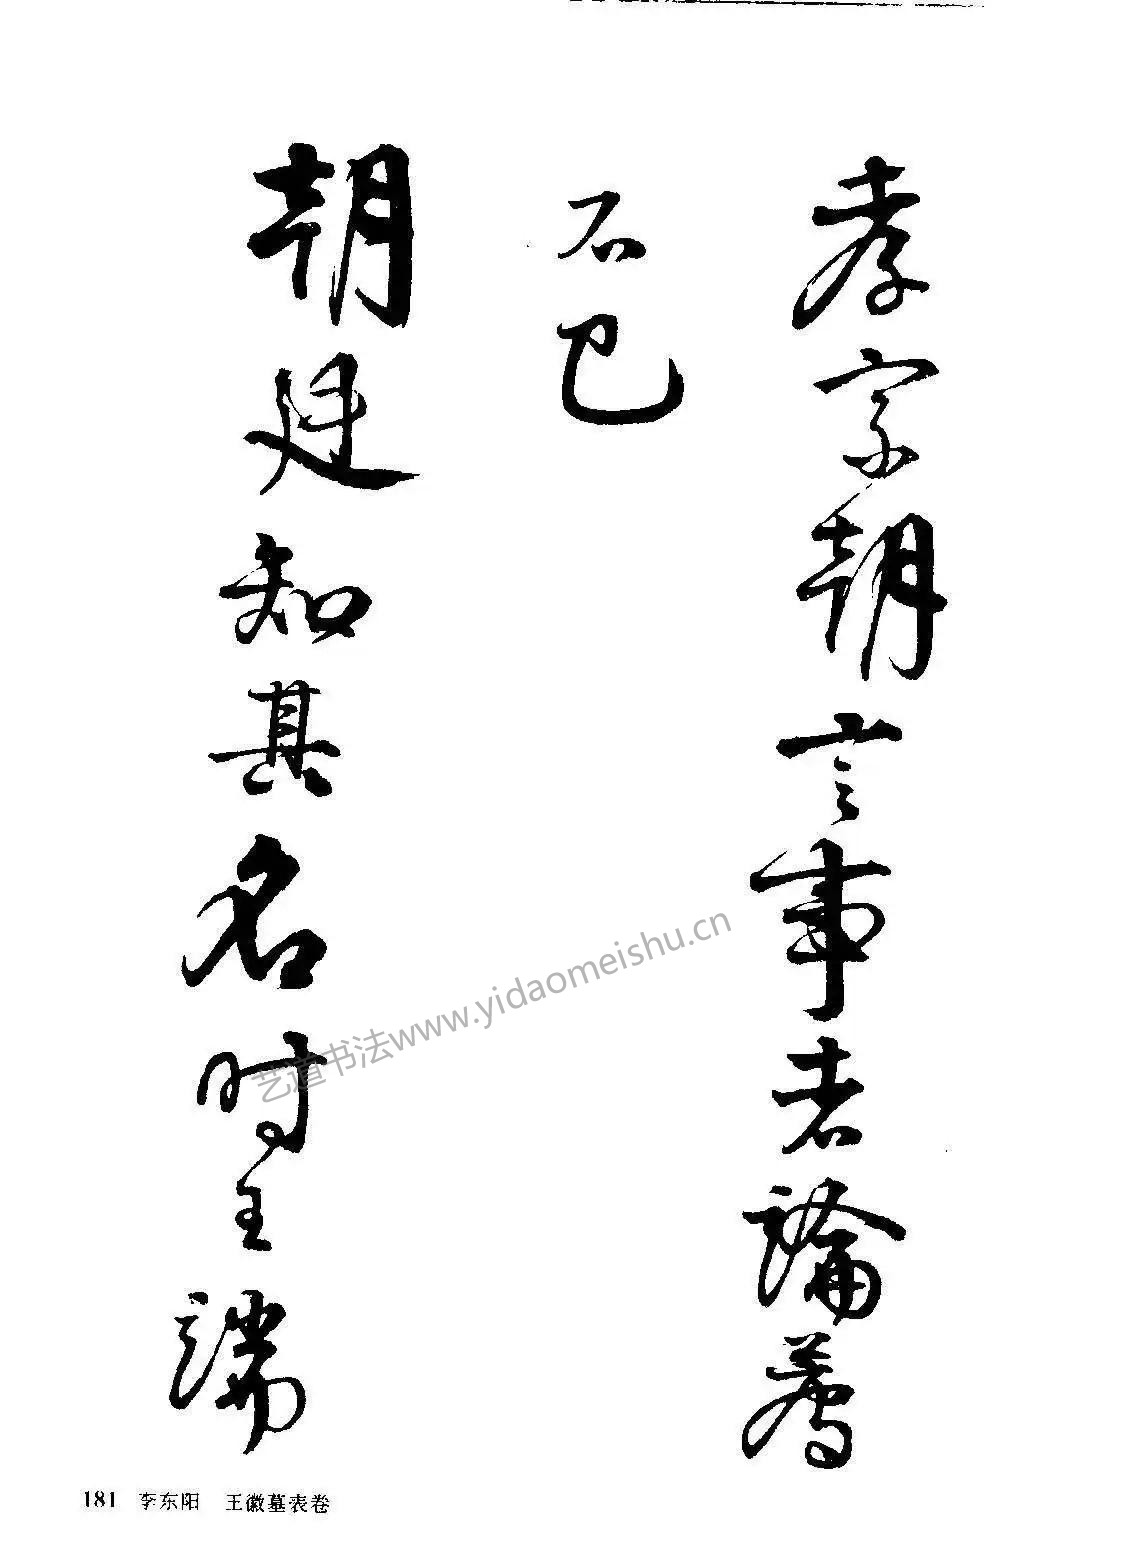 孝宗朝言事者論薦
不已
朝廷知其名時王端
艺道书法www.yidaomeishu.cn
181 李东阳 王徽墓表卷